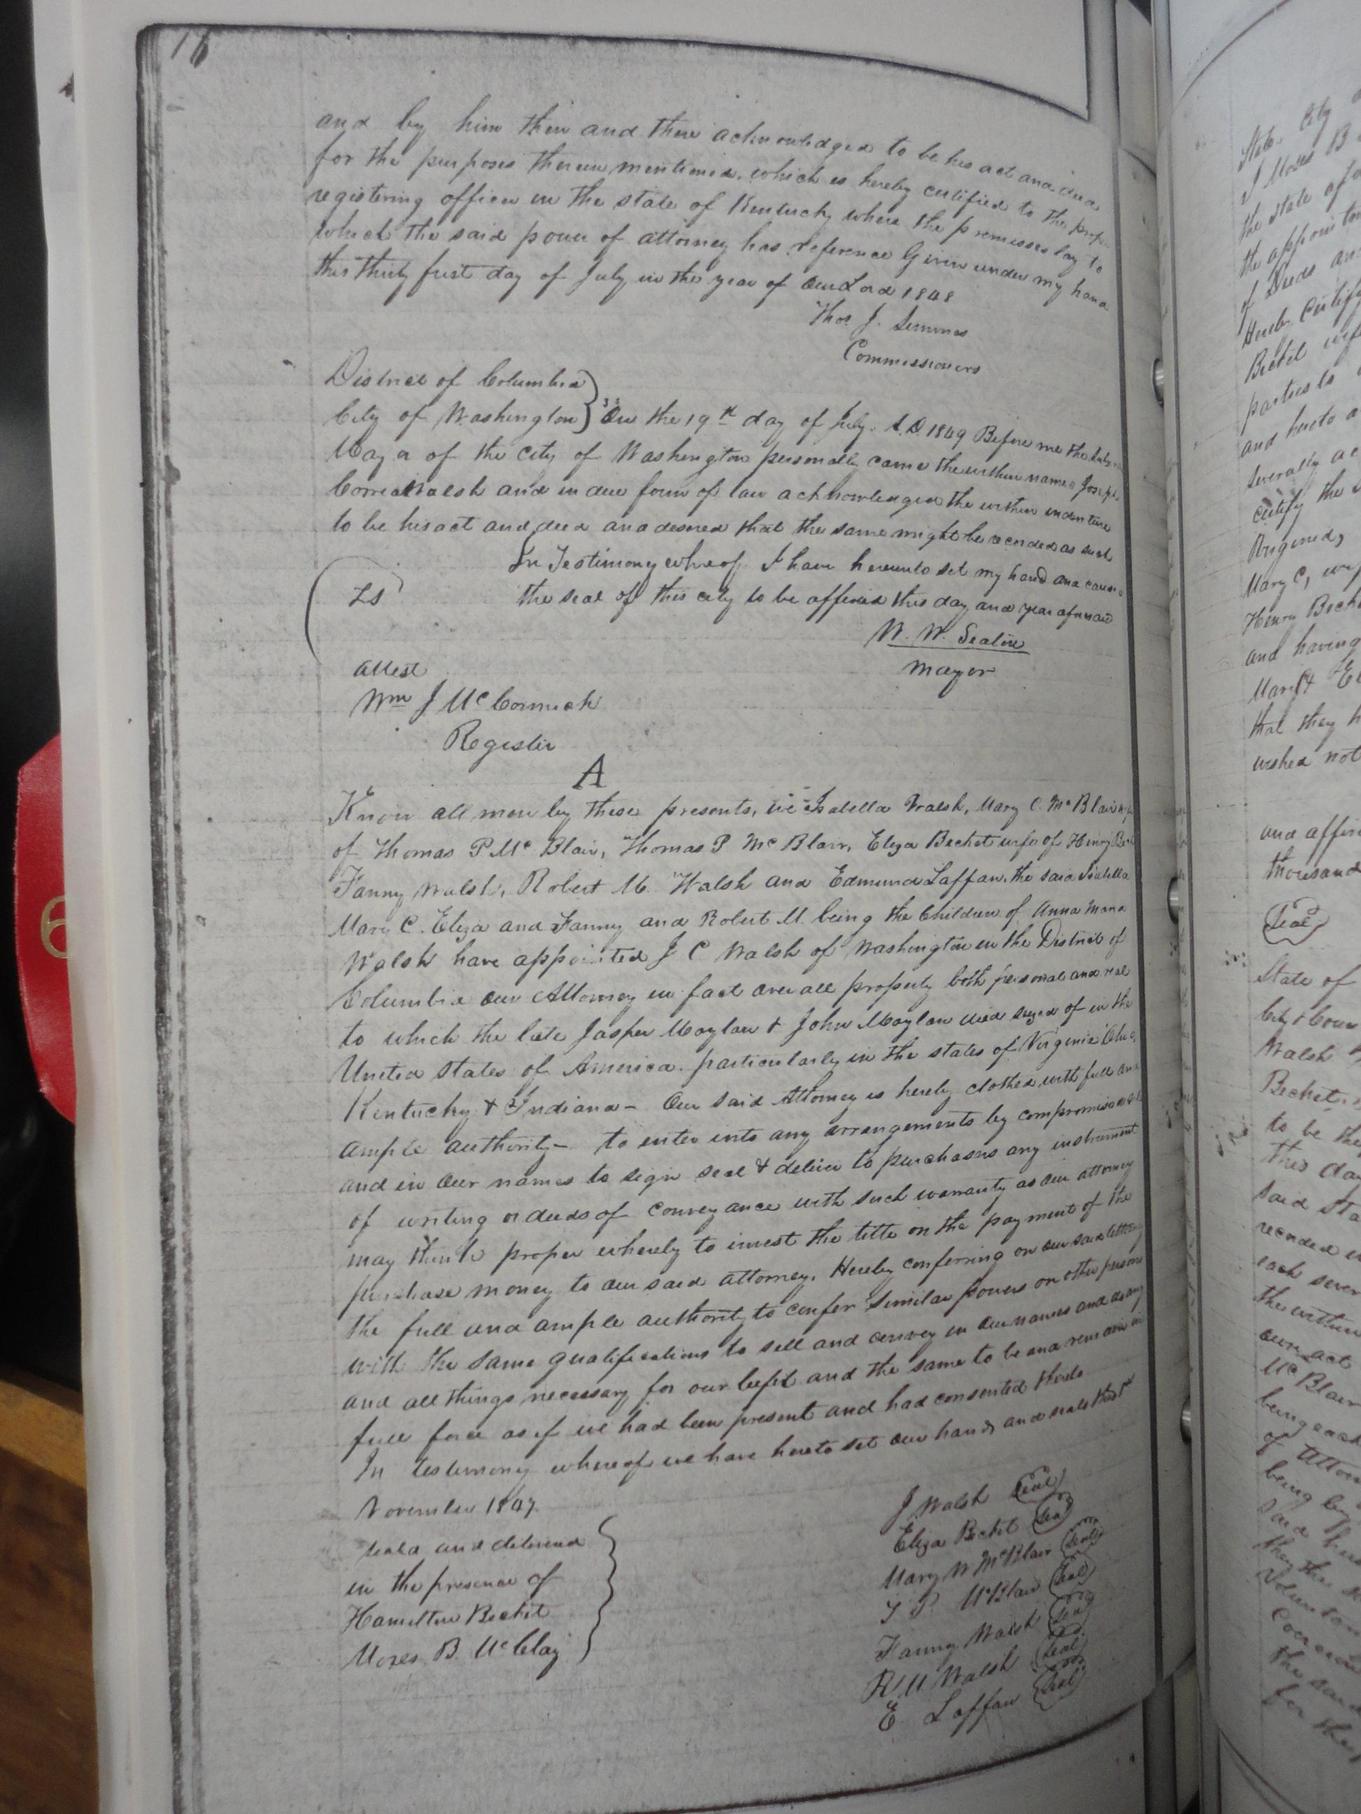 16
and by him then and there acknowledged to be his act and deed
for the purposes therein mentioned, which is hereby certified to the
registering officer in the state of Kentucky where the premises lay to
which the said power of attorney has reference Given under my hand
this thirty first day of July in the year of our Lord 1848
Thos J. Semmes
Commissioners
District of Columbia
City of Washington } ss On the 19th day of July. A.D. 1849 Before me the
Mayor of the city of Washington personally came the within named Joseph
Correa Walsh and in due form of law acknowledged the within indenture
to be his act and deed and desired that the same might be recorded as such
In Testimony whereof I have hereunto set my hand and cause
LS the seal of this city to be affixed this day and year aforesaid
W. W. Seaton
Mayor
attest
Wm J McCormick
Register
A
Know all men by these presents, we Isabella Walsh, Mary C. McBlair
of Thomas P. McBlair, Thomas P McBlair, Eliza Becket wife of Henry
Fanny Walsh, Robert M. Walsh and Edmund Laffan, the said Isabella
Mary C. Eliza and Fanny and Robert M. being the Children of Anna Maria
Walsh have appointed J C Walsh of Washington in the District of
Columbia our Attorney in fact over all property both personal and real
to which the late Jasper Moylan & John Moylan died seized of in the
United States of America. particularly in the states of Virginia Ohio
Kentucky & Indiana - Our said Attorney is hereby clothed with full and
ample authority - to enter into any arrangements by compromise
and in our names to sign seal & deliver to purchasers any instrument
of writing or deeds of conveyance with such warranty as our attorney
may think proper whereby to invest the title on the payment of the
purchase money to our said attorney. Hereby conferring on our said
the full and ample authority to confer similar powers on other persons
with the same qualifications to sell and convey in our names and do any
and all things necessary for our benefit and the same to be and remain in
full force as if we had been present and had consented thereto
In testimony whereof we have hereto set our hands and seals this 1st
November 1847.
Seald and delivered
in the presence of
Hamilton Becket
Moses B. McClay
J Walsh Seal
Eliza Becket Seal
Mary W McBlair Seal
T P McBlair Seal
Fanny Walsh Seal
R M Walsh Seal
E Laffan Seal
6
State City
I Moses B
the state of
the appointm
of Deeds and
Hereby Certify
Becket wife
parties to
and hereto a
severally ac
certify the
Mary C, wife
Henry Becket
and having
that they h
wished not
and affix
thousand
Seal
State of
City & Coun
Walsh
Becket
to be the
this day
said Sta
recorded in
each sever
the within
own act
McBlair
being each
of Attorn
being by
said
they the
voluntar
the said
for the